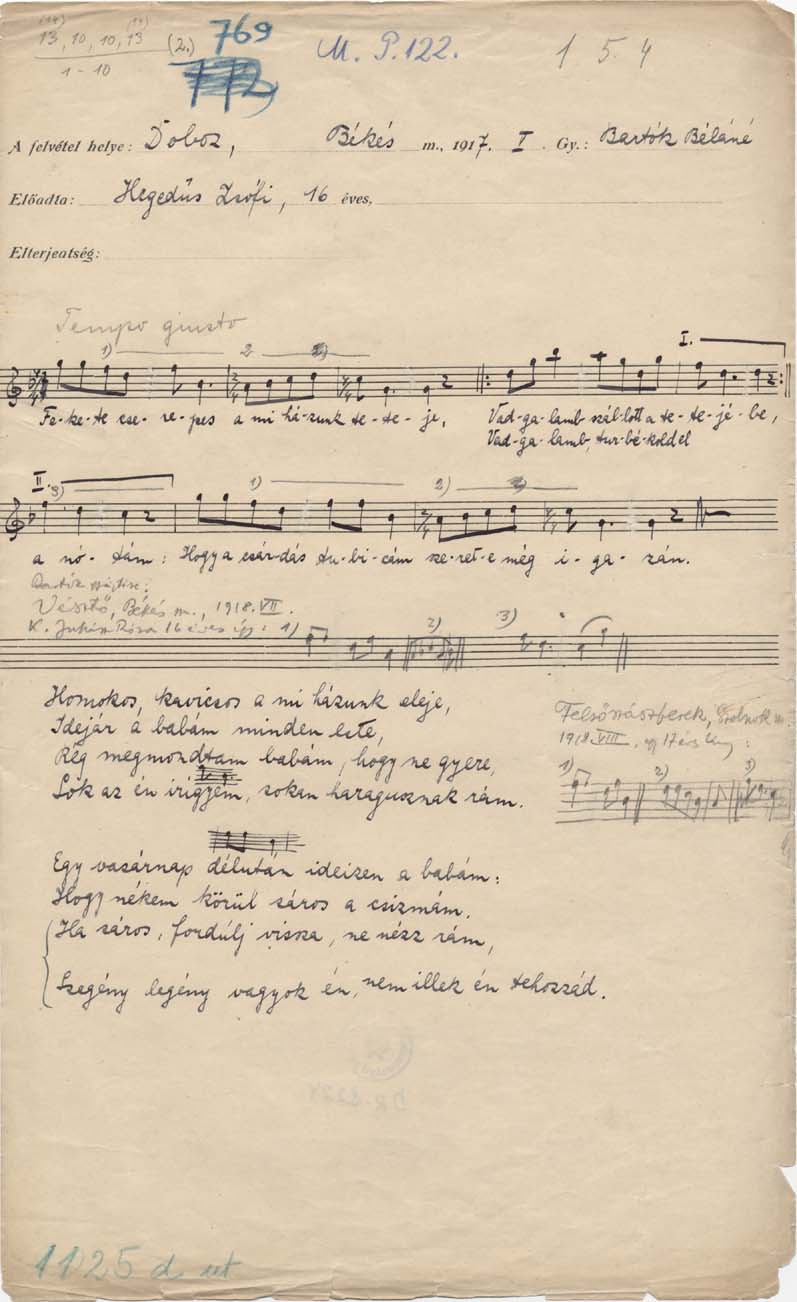 (14) (14)
13, 10, 10, 13 (2.) 769
1-10
772
M. P. 122. 1 5 4
A felvétel helye: Doboz, Békés m., 1917. I. Gy.: Bartók Béláné
Előadta: Hegedűs Zsófi, 16 éves,
Elterjeatség:
Tempo giusto
1) 2 3) I.
Fe-ke-te cse-re-pes a mi há-zunk te-te-je, Vad-ga-lamb szál-lott a te-te-jé-be,
Vad-ga-lamb, tur-bé-kold el
II. 3) 1) 2) 3
a nó-tám: Hogy a csár-dás tu-bi-cám sze-ret-e még i-ga-zán.
Vésztő, Békés m., 1918. VII.
K. Juhász Róza 16 éves így: 1) 2) 3)
Homokos, kavicsos a mi házunk eleje,
Idejár a babám minden este,
Rég megmondtam babám, hogy ne gyere,
Sok az én irigyem, sokan haragusznak rám.
Felsőnászferek, Szolnok m.
1918. VIII.
1) 2) 3)
Egy vasárnap délután ideizen a babám:
Hogy nékem körül sáros a csizmám.
Ha sáros, fordúlj vissza, ne nézz rám,
Szegény legény vagyok én, nem illek én tehozzád.
1125 d